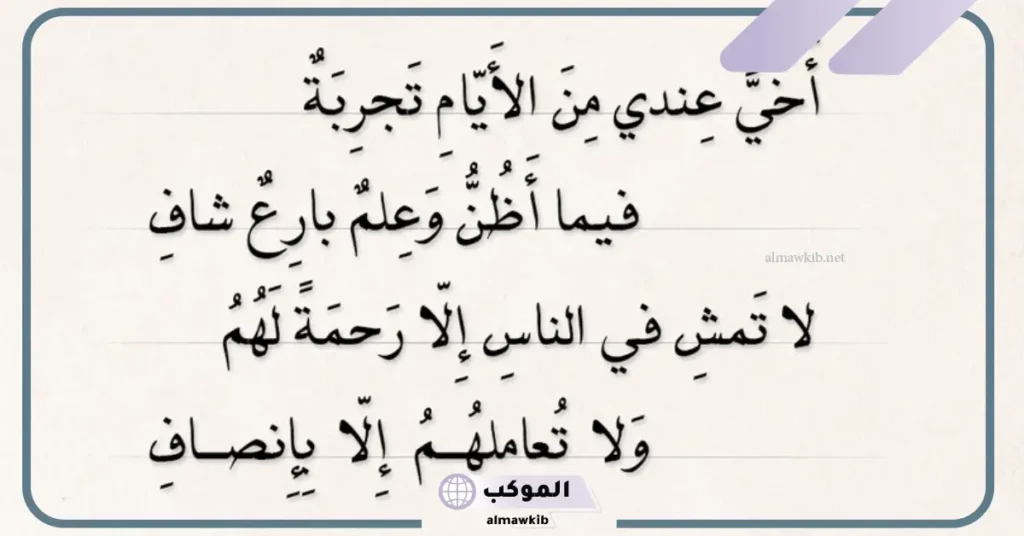 أُخَيَّ عِندي مِنَ الأَيّامِ تَجرِبَةٌ
فيما أَظُنُّ وَعِلمٌ بارِعٌ شافِ
almawkib.net
لا تَمشِ في الناسِ إِلّا رَحمَةً لَهُمُ
وَلا تُعاملهُـمُ إِلّا بِإِنصـافِ
الموكب
almawkib